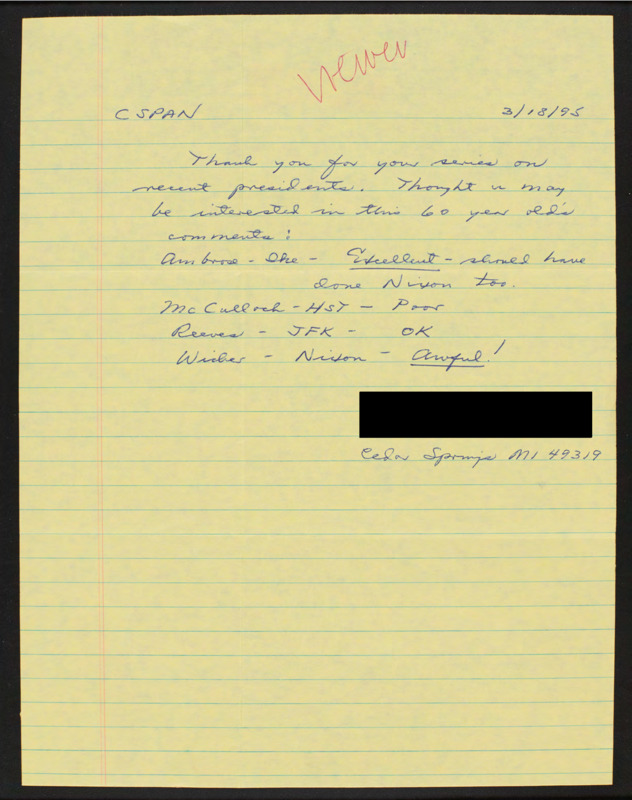 viewer
CSPAN 3/18/95
Thank you for your series on
recent presidents. Thought u may
be interested in this 60 year old's
comments:
Ambrose - Ike - Excellent - should have
done Nixon too.
McCulloch - HST - Poor
Reeves - JFK - OK
Wicker - Nixon - Awful!
Cedar Springs MI 49319